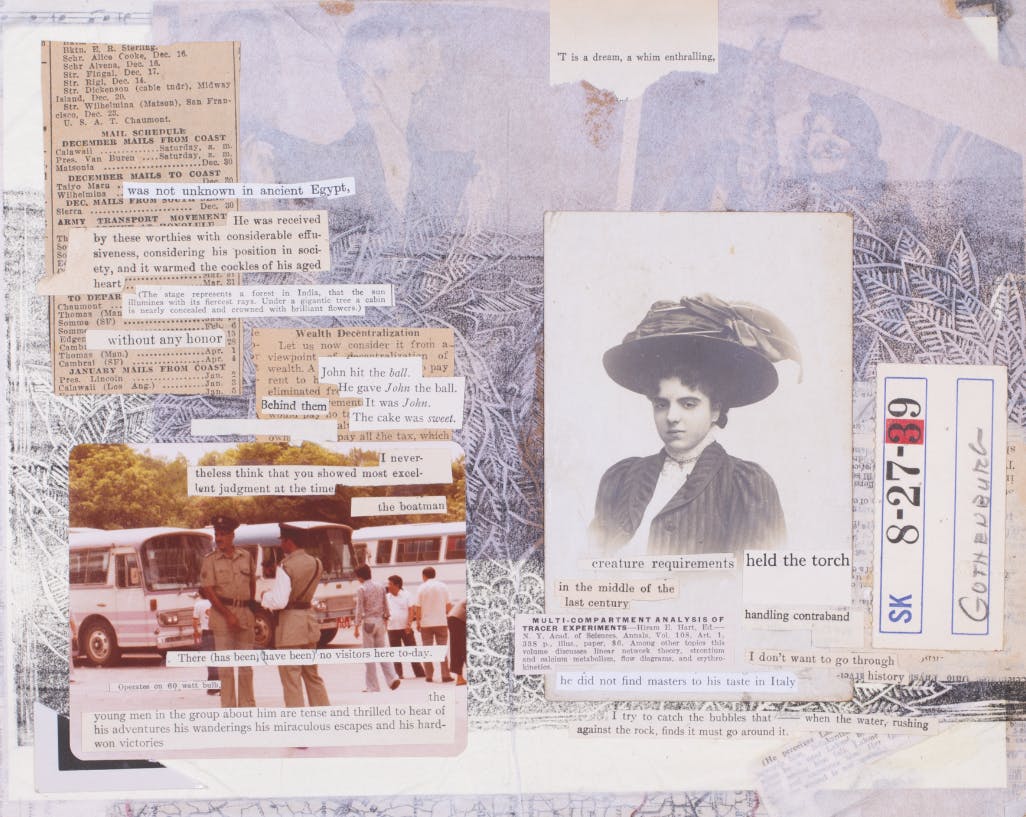 'T is a dream, a whim enthralling,
Bktn. E. R. Sterling.
Schr. Alice Cooke, Dec. 16.
Schr Alvena, Dec. 16.
Str. Fingal, Dec. 17.
Str. Rigi, Dec. 14.
Str. Dickenson (cable tndr), Midway
Island, Dec. 20.
Str. Wilhelmina (Matson), San Fran-
cisco, Dec. 23.
U. S. A. T. Chaumont.
MAIL SCHEDULE
DECEMBER MAILS FROM COAST
Calawaii .....Saturday, a. m.
Pres. Van Buren ....Saturday, a. m.
Matsonia ..........Dec. 30
DECEMBER MAILS TO COAST
Taiyo Maru
Wilhelmina
was not unknown in ancient Egypt,
DEC. MAILS FROM SOUTH
Sierra ..........Dec. 30
ARMY TRANSPORT MOVEMENT
He was received
by these worthies with considerable effu-
siveness, considering his position in soci-
ety, and it warmed the cockles of his aged
heart
Mar. 31
(The stage represents a forest in India, that the sun
illumines with its fiercest rays. Under a gigantic tree a cabin
is nearly concealed and crowned with brilliant flowers.)
TO DEPAR
Chaumont
Thomas (Man
Somme (SF)
without any honor
Thomas (Man.) ..........Apr. 1
Cambrai (SF) ..........Apr. 4
JANUARY MAILS FROM COAST
Pres. Lincoln ..........Jan. 2
Calawaii (Los Ang.) .....Jan. 3
Wealth Decentralization
Let us now consider it from a
viewpoint decentralization of
wealth. A pay
rent to h
eliminated fr
John hit the ball.
He gave John the ball.
It was John.
The cake was sweet.
Behind them
pay all the tax, which
I never-
theless think that you showed most excel-
lent judgment at the time
the boatman
There (has been) (have been) no visitors here to-day.
Operates on 60 watt bulb.
the
young men in the group about him are tense and thrilled to hear of
his adventures his wanderings his miraculous escapes and his hard-
won victories
creature requirements
held the torch
in the middle of the
last century
handling contraband
MULTI-COMPARTMENT ANALYSIS OF
TRACER EXPERIMENTS—Hiram E. Hart, Ed.—
N. Y. Acad. of Sciences, Annals, Vol. 108, Art. 1,
338 p., illus., paper, $6. Among other topics this
volume discusses linear network theory, strontium
and calcium metabolism, flow diagrams, and erythro-
kinetics.
he did not find masters to his taste in Italy
I don't want to go through
history
I try to catch the bubbles that — when the water, rushing
against the rock, finds it must go around it.
SK 8-27-39
GOTHENBURG